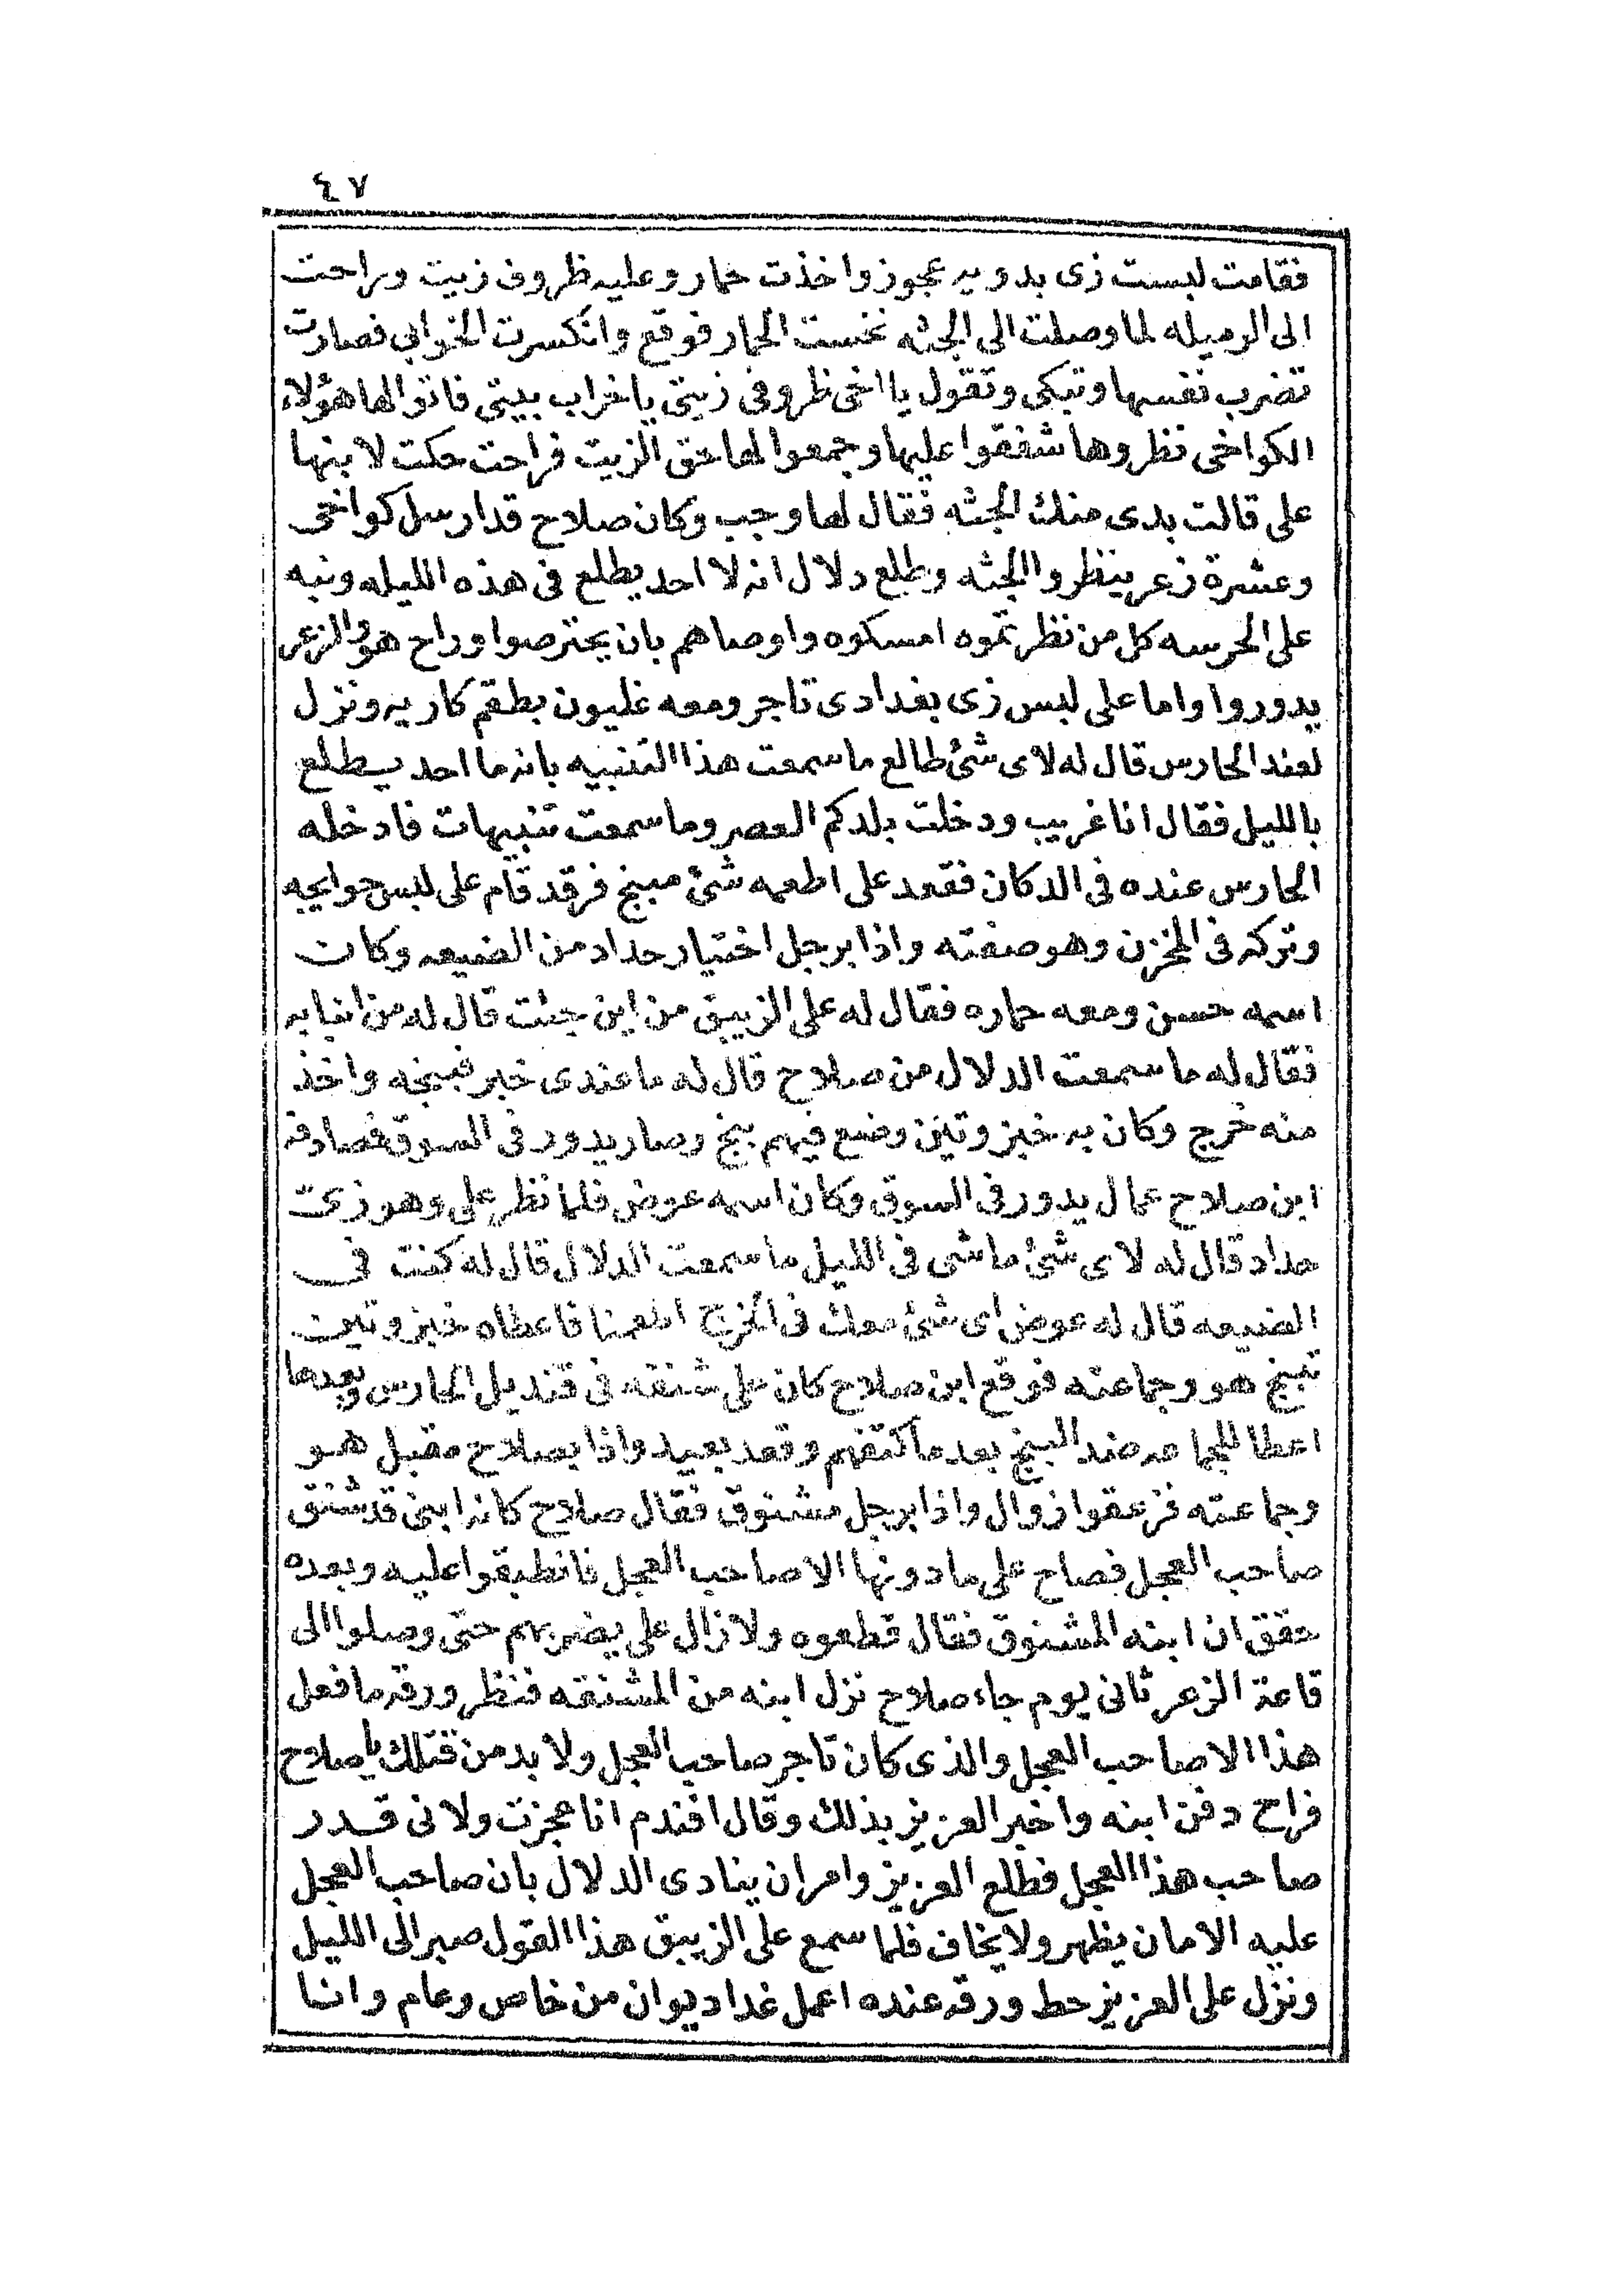 ٤٧
فقامت لبست زى بدويه عجوز واخذت حمار وعليه ظروف زيت وراحت
الى الرميله لما وصلت الى الجثه نخست الحمار فوقع وانكسرت الخوابي فصارت
تضرب نفسها وتبكى وتقول يا اخى ظروفى زيتى يا خراب بيتى فاتوا لها هؤلاء
الكواخى نظروها شفقوا عليها وجمعوا لها حق الزيت فراحت حكت لابنها
على قالت بدى منك الجثه فقال لها وجب وكان صلاح قد ارسل كواخى
وعشرة زعر ينظروا الجثه وطلع دلال انه لا احد يطلع فى هذه الليله ونبه
على الحرسه كل من نظرتموه امسكوه واوصاهم بان يحترصوا وراح هو والزعر
يدوروا واما على لبس زى بغدادى تاجر ومعه غليون بطقم كاربه ونزل
لعند الحارس قال له لاى شئ طالع ما سمعت هذا التنبيه بانه ما احد يسطلع
بالليل فقال انا غريب ودخلت بلدكم العصر وما سمعت تنبيهات فادخله
الحارس عنده فى الدكان فقعد على اطعمه شئ مبنج فرقد قام على لبس حوايجه
وتركه فى المخزن وهو صفته واذا برجل اختيار حداد من الضيعه وكان
اسمه حسن ومعه حماره فقال له على الزيبق من اين جئت قال له من انبابه
فقال له ما سمعت الدلال من صلاح قال له ما عندى خبر فبنجه واخذ
منه خرج وكان به خبز وتين وضع فيهم بنج وصار يدور فى السوق فصادفه
ابن صلاح عمال يدور فى السوق وكان اسمه عوض فلما نظر على وهو زى
حداد قال له لاى شئ ماشى فى الليل ما سمعت الدلال قال له كنت فى
الضيعه قال له عوض اى شئ معك فى الخرج اطعمنا فاعطاه خبز وتين
تبنج هو وجماعته فوقع ابن صلاح كان على شنقه فى قنديل الحارس وبعدها
اعطا للجماعه ضد البنج بعد ما كتفهم وقعد بعيد واذا بصلاح مقبل هو
وجماعته فزعقوا زوال واذا برجل مشنوق فقال صلاح كانه ابنى قد شنق
صاحب العجل فصاح على ما دونها الا صاحب العجل فانطبقوا عليه وبعده
حقق ان ابنه المشنوق فقال قطعوه ولا زال على يضربهم حتى وصلوا الى
قاعة الزعر ثانى يوم جاء صلاح نزل ابنه من المشنقه فنظر ورقه ما فعل
هذا الا صاحب العجل والذى كان تاجر صاحب العجل ولا بد من قتلك يا صلاح
فراح دفن ابنه واخبر العزيز بذلك وقال افندم انا عجزت ولانى قدر
صاحب هذا العجل فطلع العزيز وامر ان ينادى الدلال بان صاحب العجل
عليه الامان يظهر ولا يخاف فلما سمع على الزيبق هذا القول صبر الى الليل
ونزل على العزيز حط ورقه عنده اعمل غدا ديوان من خاص وعام وانا